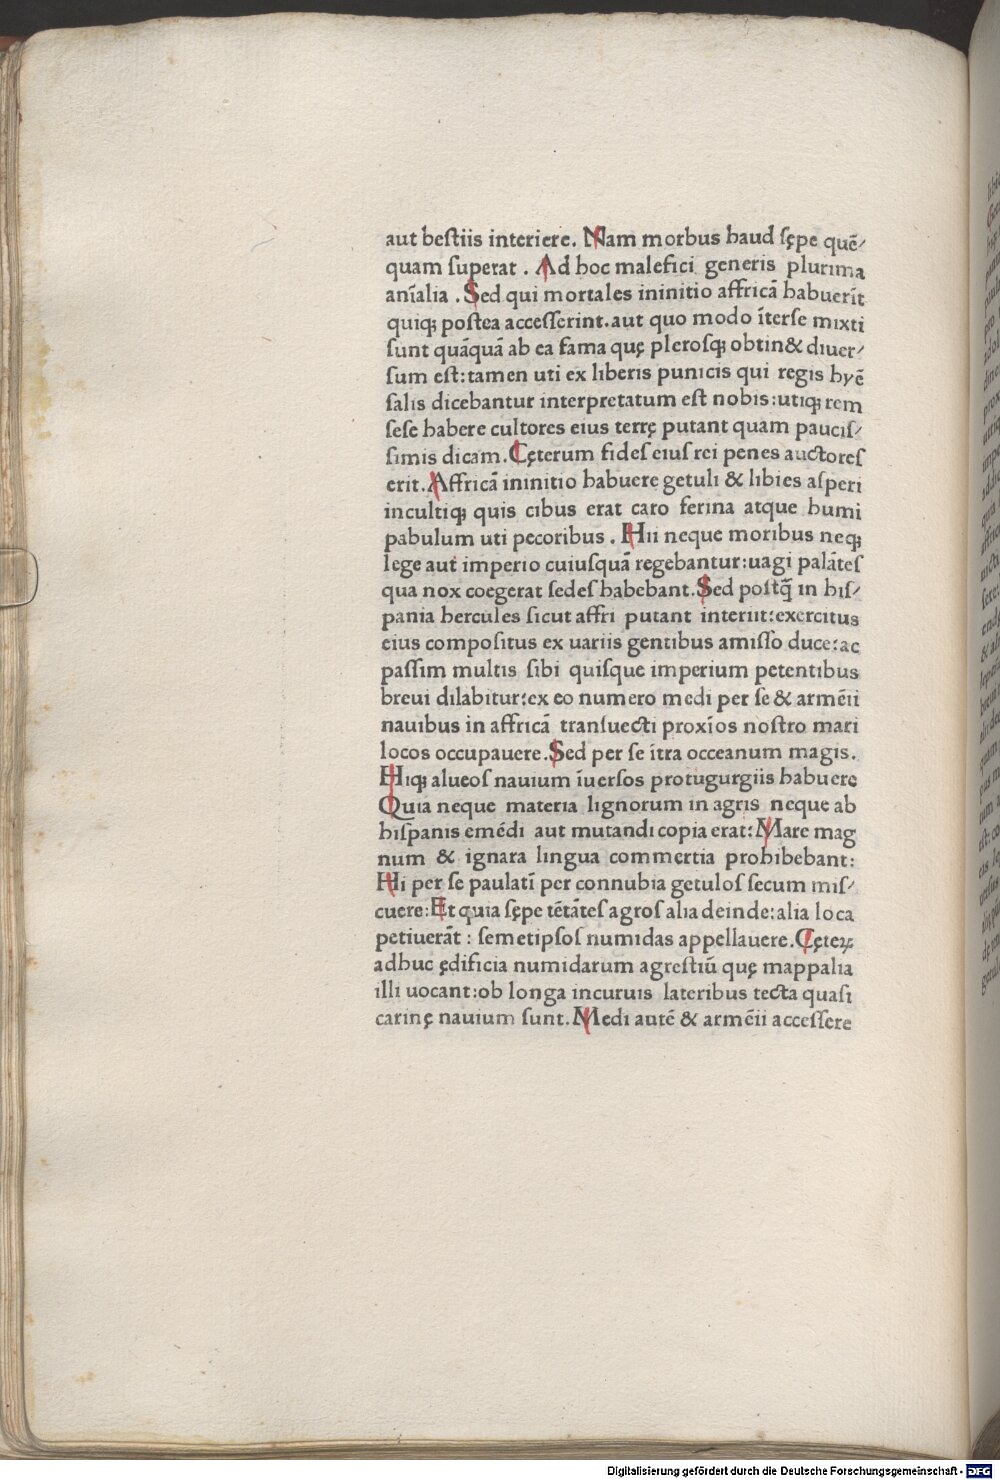 aut bestiis interiere. Nam morbus haud sępe quē/
quam superat . Ad hoc malefici generis plurima
anīalia . Sed qui mortales ininitio affricā habuerīt
quiqꝫ postea accesserint.aut quo modo īterse mixti
sunt quāquā ab ea fama quę plerosqꝫ obtin& diuer/
sum est:tamen uti ex liberis punicis qui regis hyē
salis dicebantur interpretatum est nobis:utiqꝫ rem
sese habere cultores eius terrę putant quam paucis/
simis dicam.Cęterum fides eius rei penes auctores
erit.Affricā ininitio habuere getuli & libies asperi
incultiqꝫ quis cibus erat caro ferina atque humi
pabulum uti pecoribus . Hii neque moribus neqꝫ
lege aut imperio cuiusquā regebantur:uagi palātes
qua nox coegerat sedes habebant.Sed postq̄ in his/
pania hercules sicut affri putant interiit:exercitus
eius compositus ex uariis gentibus amisso duce:ac
passim multis sibi quisque imperium petentibus
breui dilabitur:ex eo numero medi per se & armēii
nauibus in affricā transuecti proxīos nostro mari
locos occupauere.Sed per se ītra occeanum magis.
Hiqꝫ alueos nauium īuersos protugurgiis habuere
Quia neque materia lignorum in agris neque ab
hispanis emēdi aut mutandi copia erat:Mare mag
num & ignara lingua commertia prohibebant:
Hi per se paulatī per connubia getulos secum mis/
cuere:Et quia sępe tētātes agros alia deinde:alia loca
petiuerāt : semetipsos numidas appellauere.Cęteꝝ
adhuc ędificia numidarum agrestiū quę mappalia
illi uocant:ob longa incuruis lateribus tecta quasi
carinę nauium sunt.Medi autē & armēii accessere
Digitalisierung gefördert durch die Deutsche Forschungsgemeinschaft - DFG